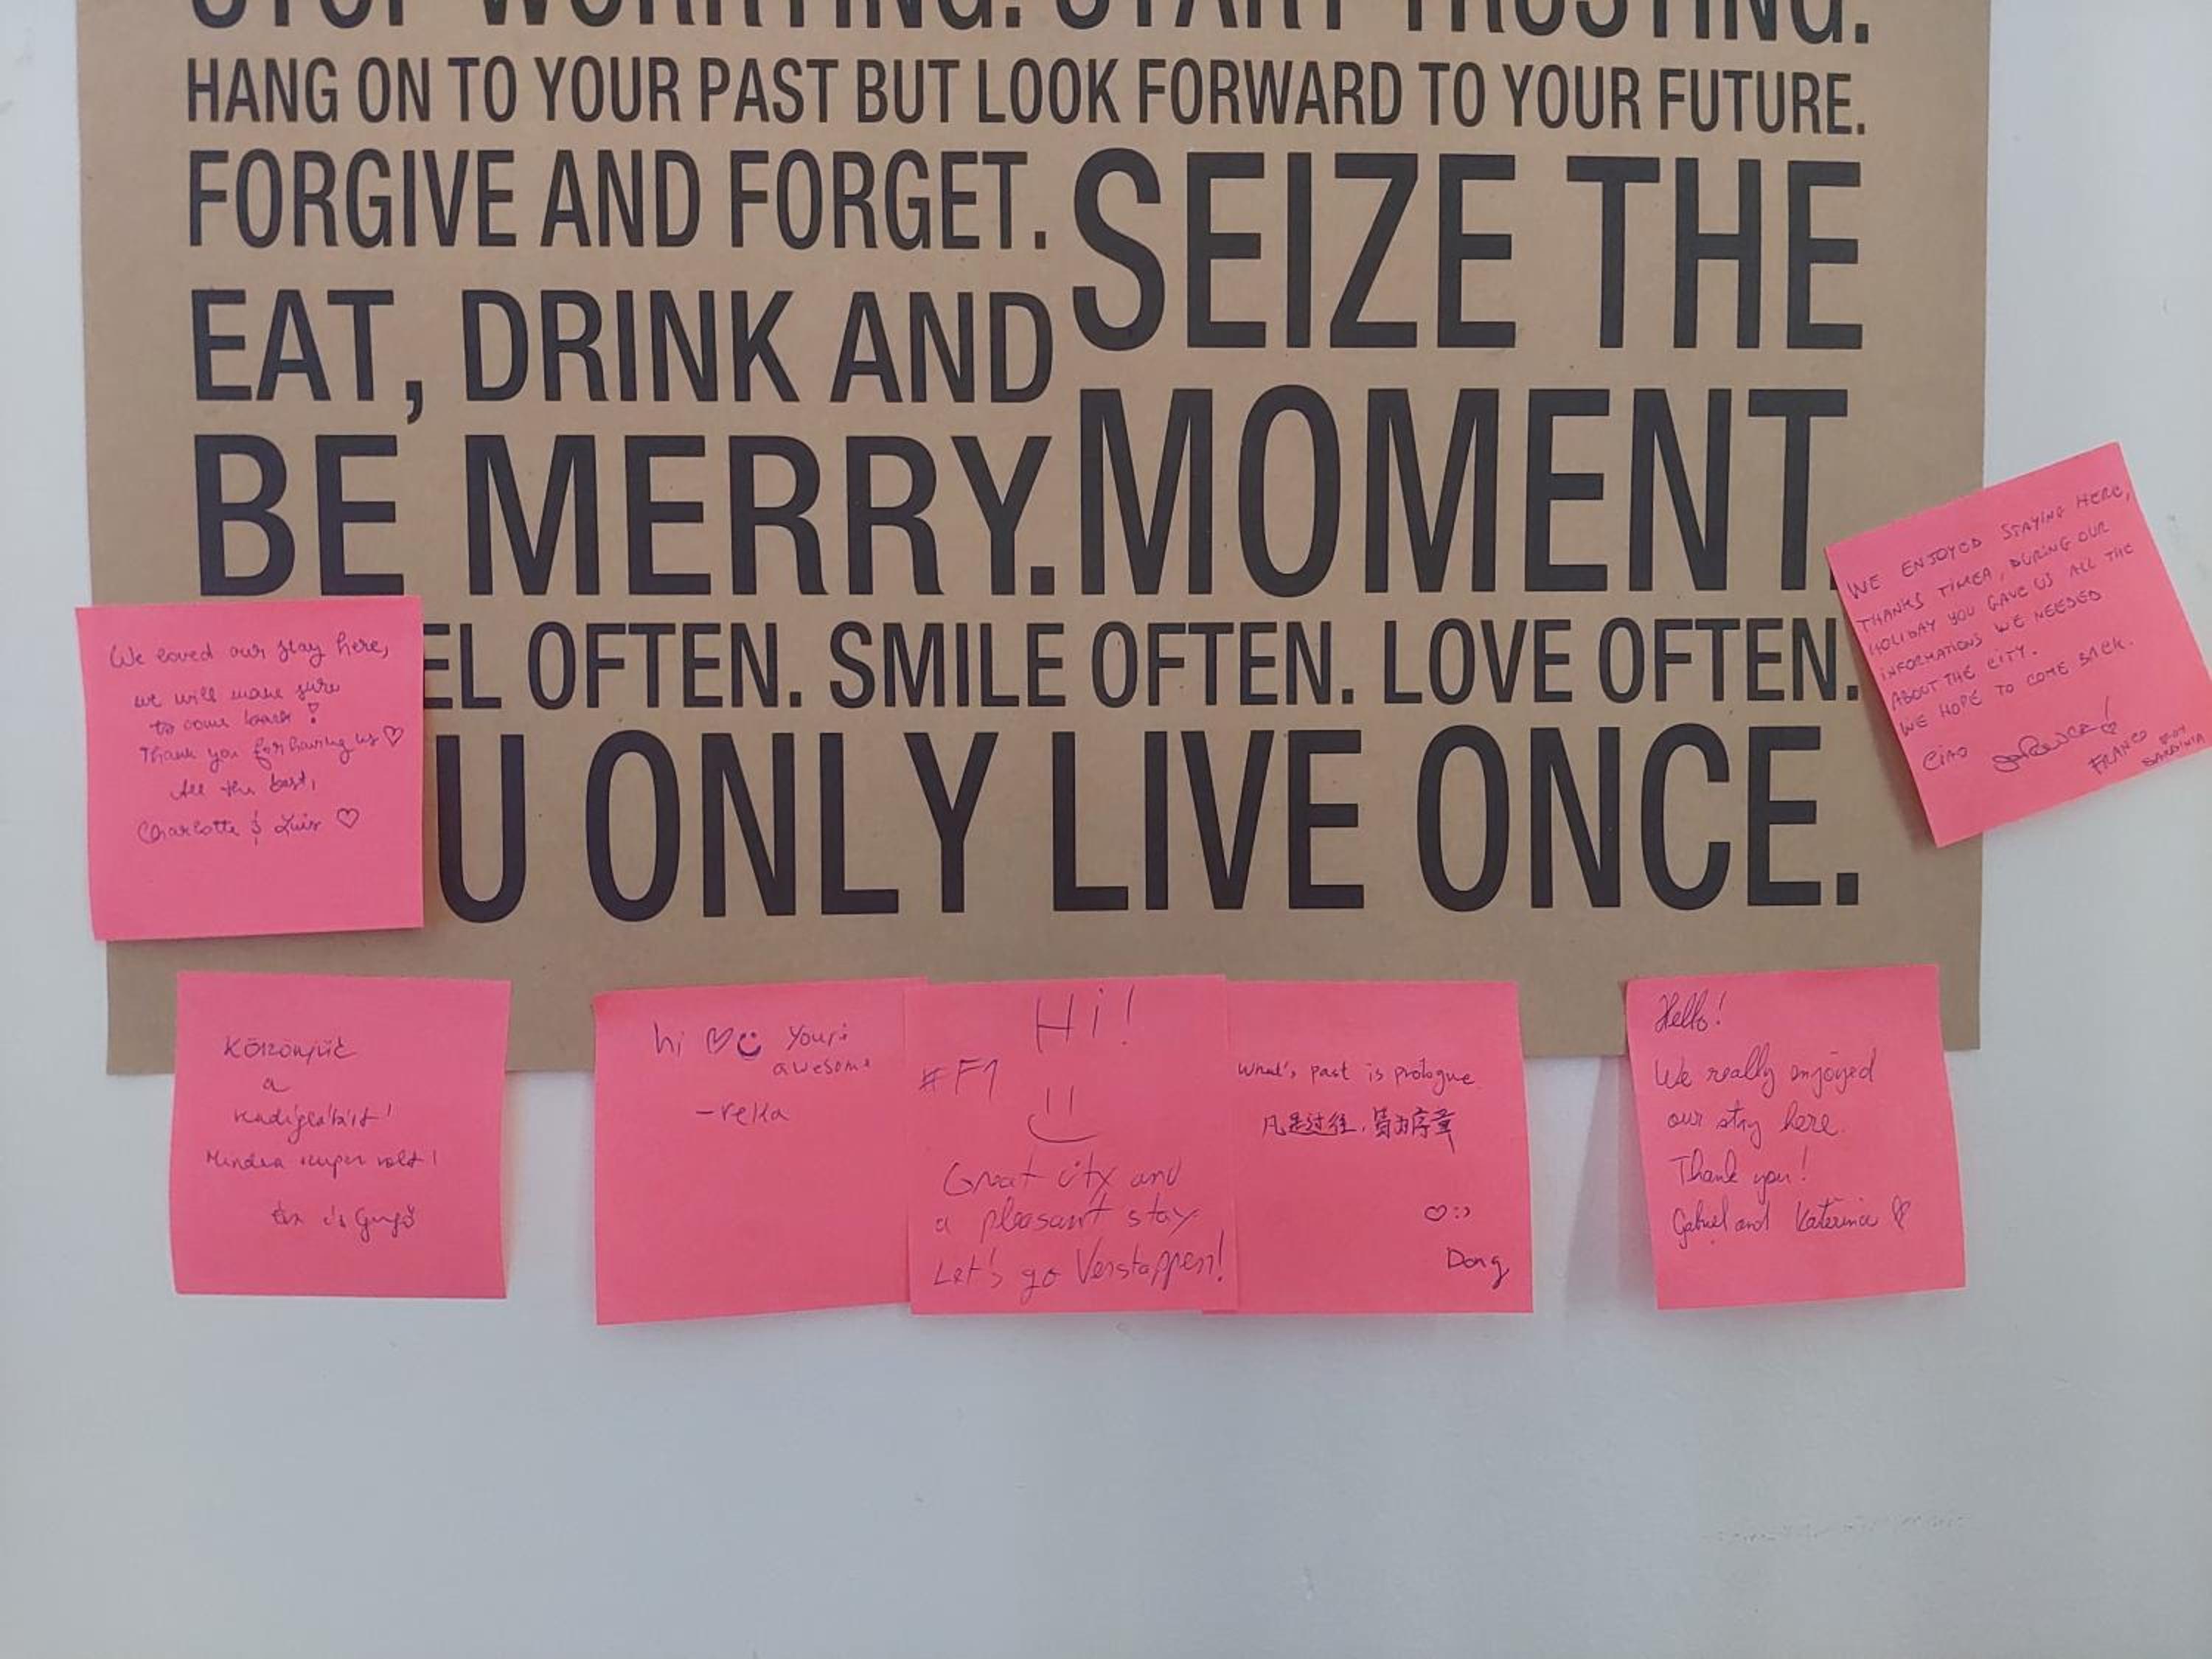 STOP WORRYING. START TRUSTING.
HANG ON TO YOUR PAST BUT LOOK FORWARD TO YOUR FUTURE.
FORGIVE AND FORGET.
SEIZE THE
EAT, DRINK AND
BE MERRY.
MOMENT.
EL OFTEN. SMILE OFTEN. LOVE OFTEN.
U ONLY LIVE ONCE.
We loved our stay here,
we will make sure
to come back!
Thank you for having us ♡
All the best,
Charlotte & Luis ♡
WE ENJOYED STAYING HERE,
THANKS TIMEA, DURING OUR
HOLIDAY YOU GAVE US ALL THE
INFORMATIONS WE NEEDED
ABOUT THE CITY.
WE HOPE TO COME BACK.
CIAO
FRANCO
SARDINIA
Köszönjük
a
vendéglátást!
Minden szuper volt!
és Gergő
hi ♡ Your'e
awesome
-reka
Hi!
#F1
Great city and
a pleasant stay
Let's go Verstappen!
What's past is prologue
凡是过往，皆为序章
♡:)
Dong
Hello!
We really enjoyed
our stay here.
Thank you!
Gabriel and Katerina ♡